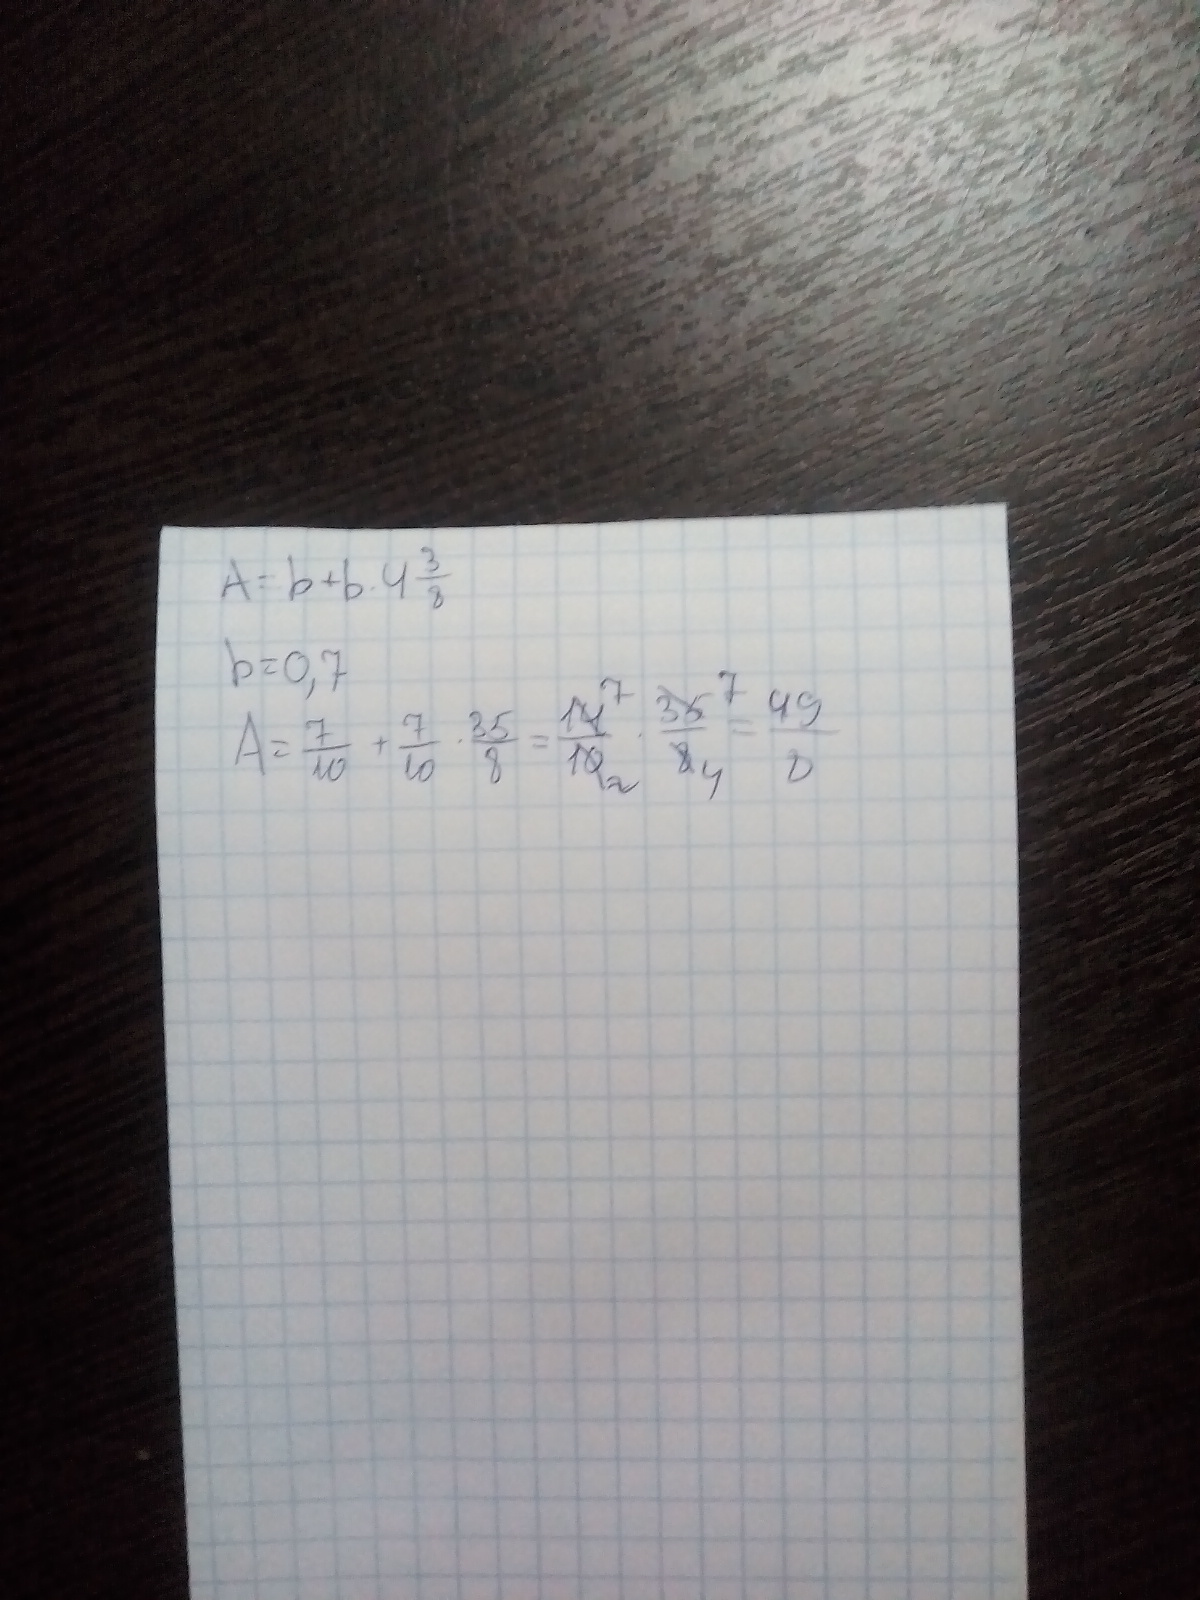 A = b + b · 4 3/8
b = 0,7
A = 7/10 + 7/10 · 35/8 = 14 7/10 2 · 35 7/8 4 = 49/8